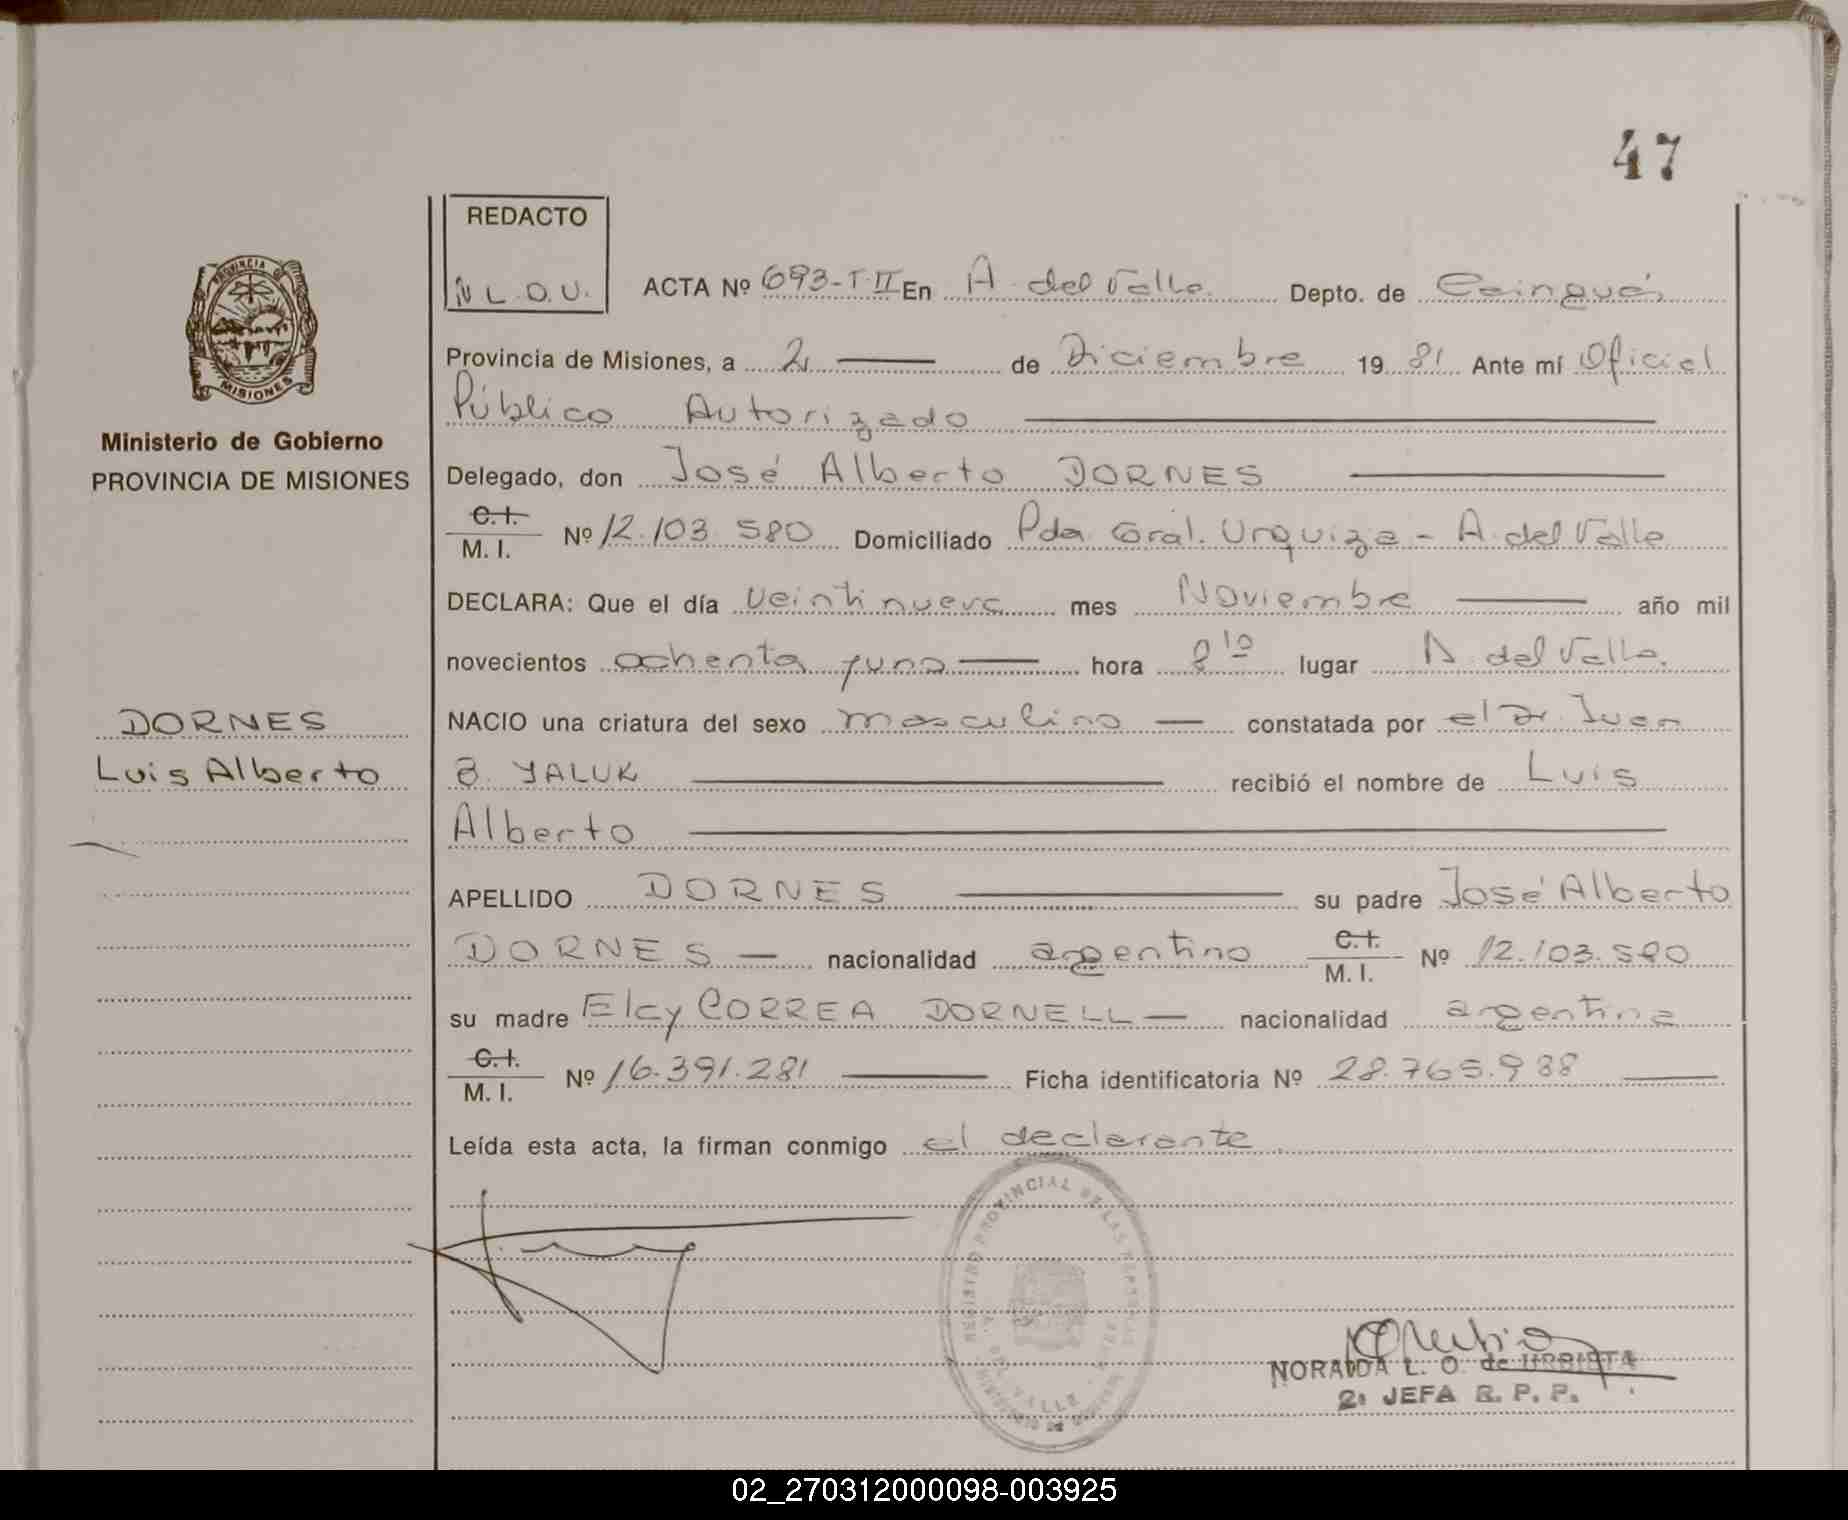 47
REDACTO
N L.O.U.
ACTA Nº 693-T-II En A. del Valle Depto. de Cainguás
Provincia de Misiones, a 2 de Diciembre 19 81 Ante mí Oficial
Público Autorizado
Ministerio de Gobierno
PROVINCIA DE MISIONES
PROVINCIA D
MISIONES
Delegado, don José Alberto DORNES
C.I. M. I. Nº 12.103.580 Domiciliado Pda Gral. Urquiza - A. del Valle
DECLARA: Que el día veintinueve mes Noviembre año mil
novecientos ochenta y uno hora 8 10 lugar A. del Valle.
DORNES
Luis Alberto
NACIO una criatura del sexo masculino constatada por el Dr. Juan
YALUK recibió el nombre de Luis
Alberto
APELLIDO DORNES su padre José Alberto
DORNES nacionalidad argentino C.I. M. I. Nº 12.103.580
su madre Elcy CORREA DORNELL nacionalidad argentina
C.I. M. I. Nº 16.391.281 Ficha identificatoria Nº 28.765.938
Leída esta acta, la firman conmigo el declarante
REGISTRO PROVINCIAL DE LAS PERSONAS
NORAIDA L. O. de URBIETA
2ª JEFA R. P. P.
02_270312000098-003925